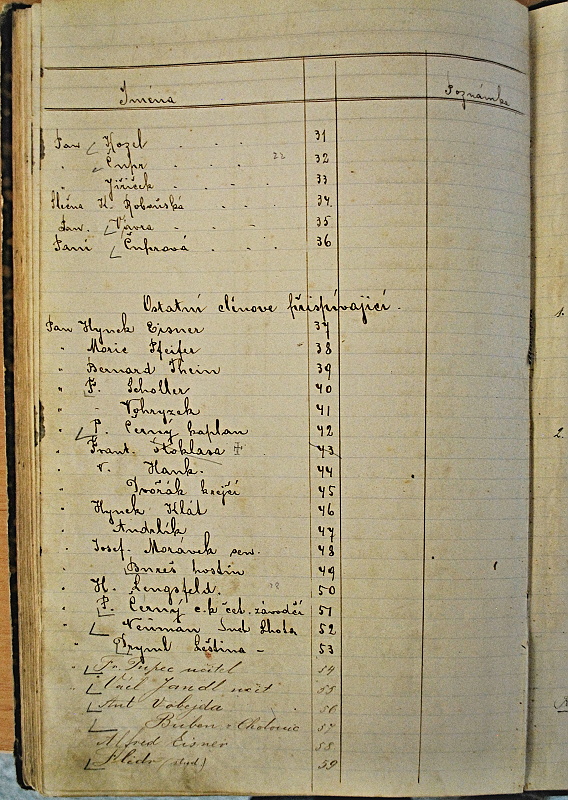 Jména Poznámka
Pan Kozel 31
" Čupr 22 32
" Jiříček 33
Slečna K. 34
Pan. Vávra 35
Paní Čuprová 36
Ostatní členove přispívajicí.
Pan Hynek Eisner 37
" Moric Pfeifer 38
" Bernard Thein 39
" F. Scholler 40
" Vohryzek 41
" P. Černý kaplan 42
" Frant. Stoklasa 43
" V. Hank. 44
" Dvořák krejčí 45
" Hynek Klát 46
" Andrlík 47
" Josef. Morávek sen. 48
" Bureš hostin 49
" H. Lengsfeld. 50
" P. Černý c. k. čet. závodčí 51
" Neuman Lhota 52
" Leština 53
" Fr. učitel 54
" Jandl učit 55
" Ant. Vobejda 56
Buben z 57
Alfred Eisner 58
(stud.) 59
1.
2.